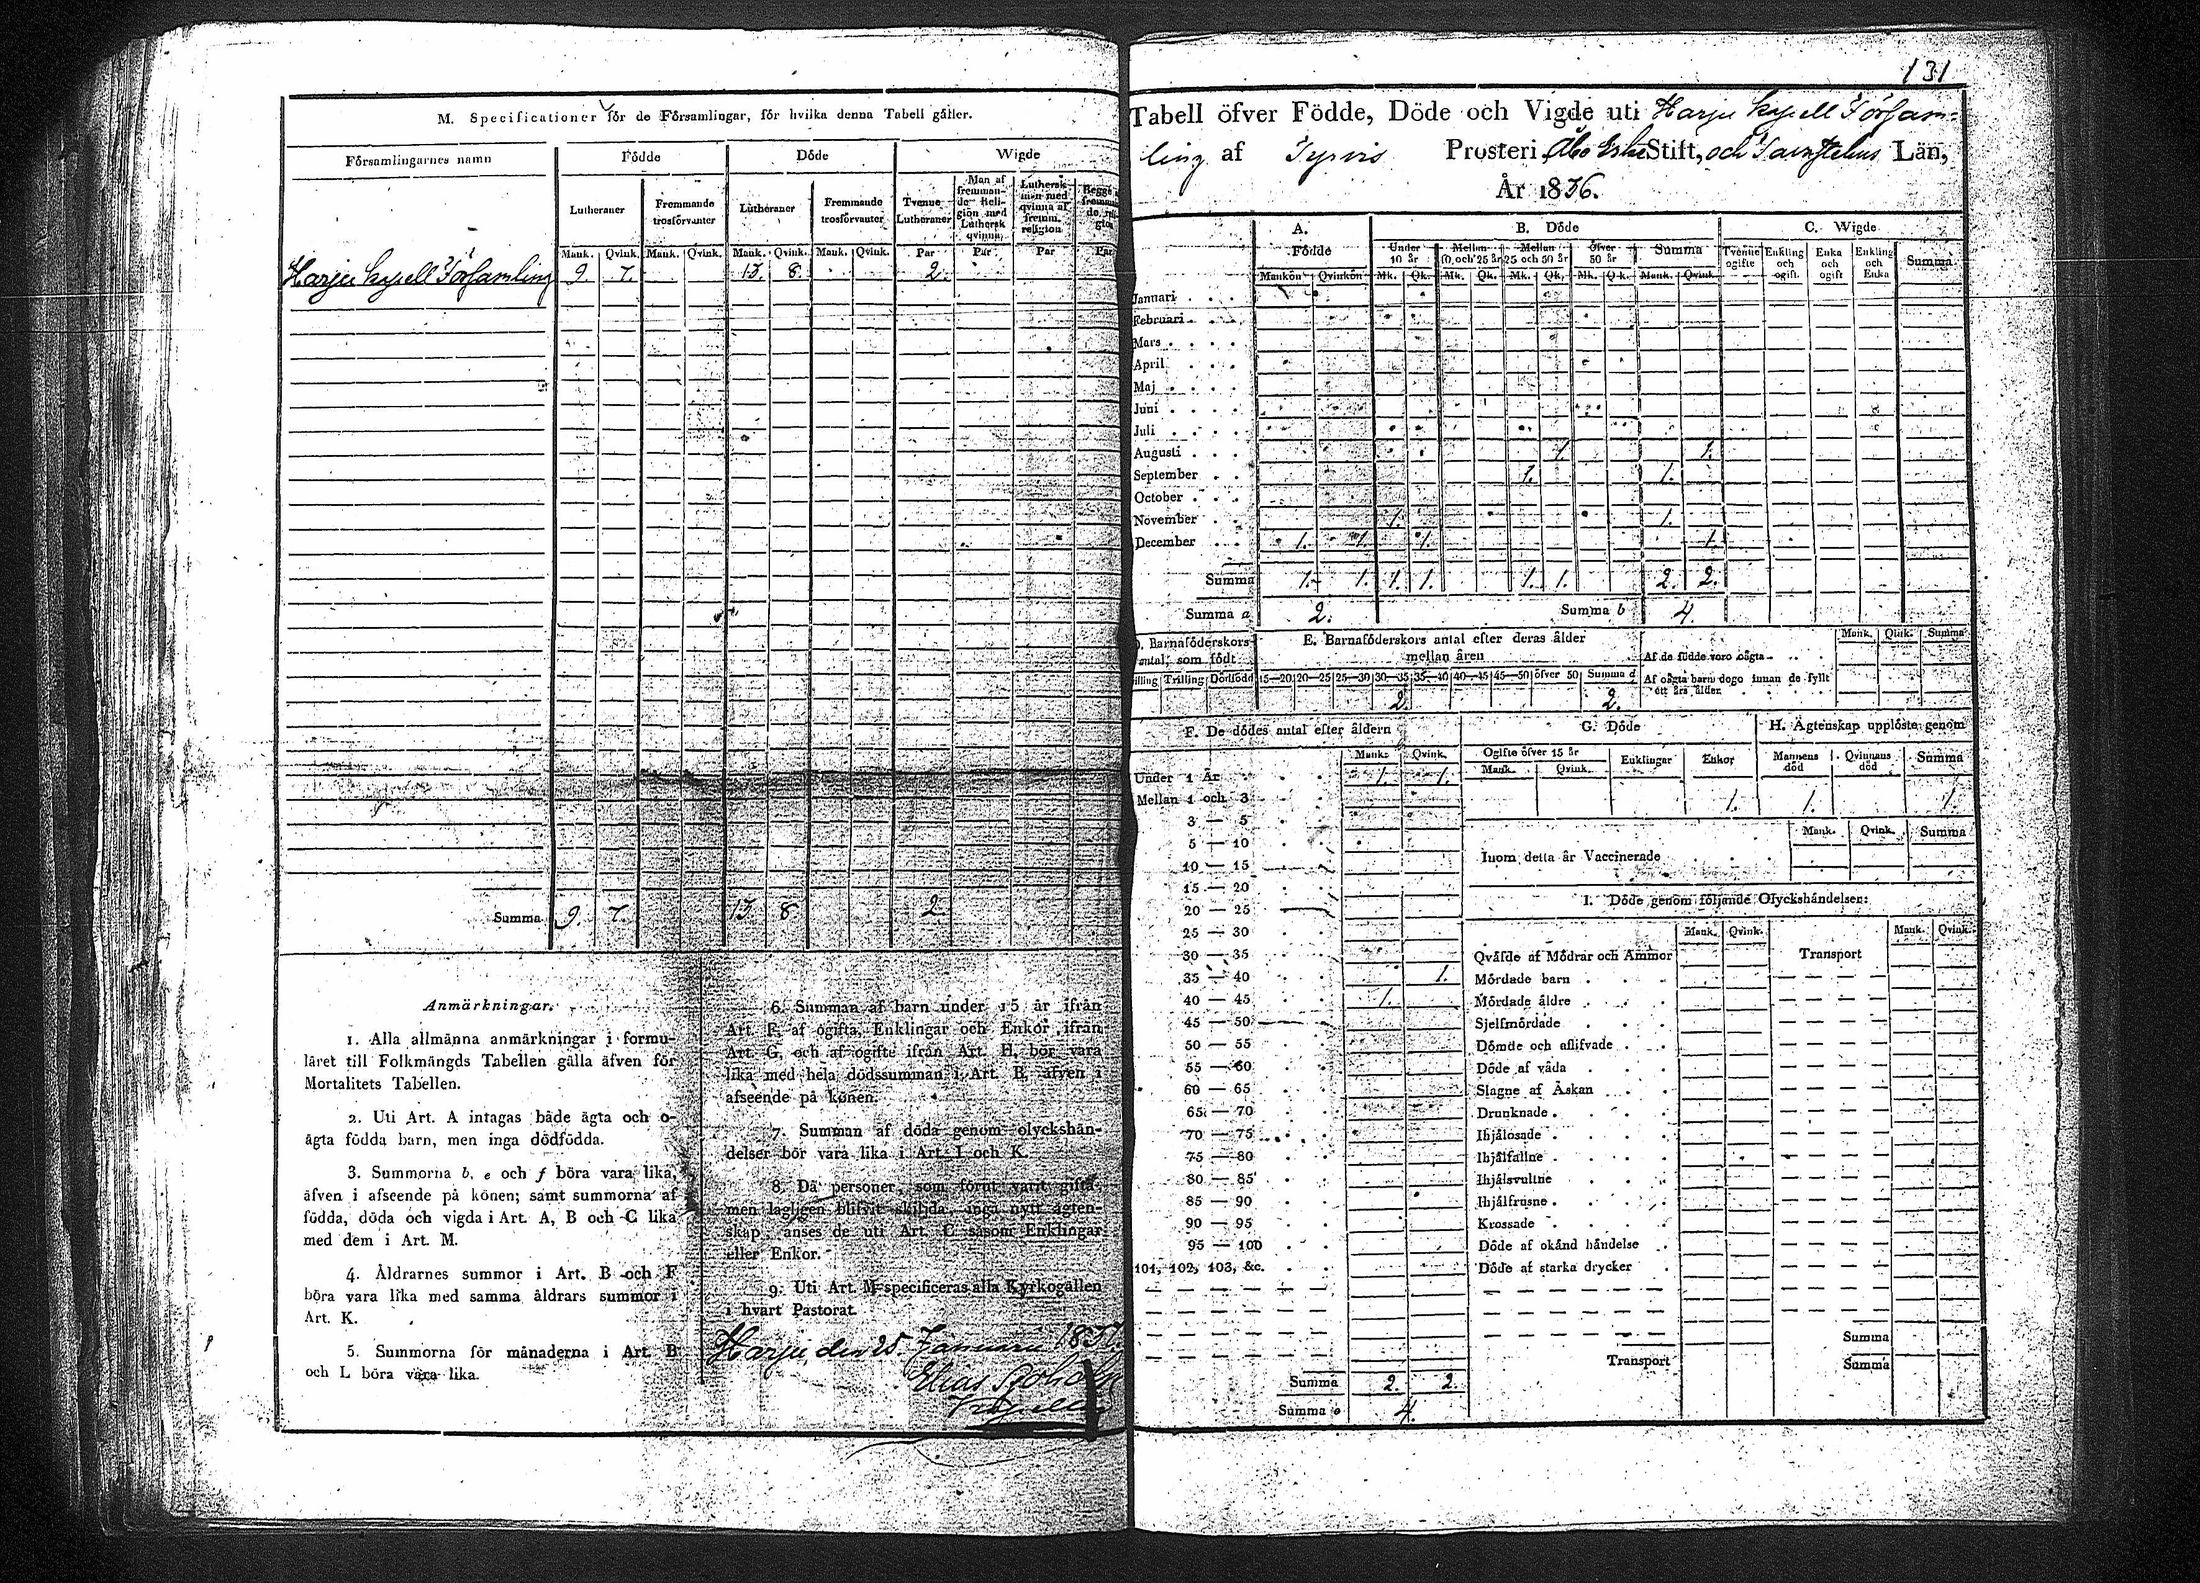 M. Specificationer för de Församlingar, för hvilka denna Tabell gäller.
Församlingarnes namn Födde Döde Wigde
Lutheraner Fremmande trosförvanter Lutheraner Fremmande trosförvanter Tvenne Lutheraner Man af fremmande Religion med Luthersk qvinna Luthersk man med qvinna af fremm. religion
Mank. Qvink. Mank. Qvink. Mank. Qvink. Mank. Qvink. Par Par Par Par
Harju Kapell Församling 9. 7. 13. 8. 2.
Summa 9. 7. 13 8 2
Anmärkningar.
1. Alla allmänna anmärkningar i formu-
läret till Folkmängds Tabellen gälla äfven för
Mortalitets Tabellen.
2. Uti Art. A intagas både ägta och o-
ägta födda barn, men inga dödfödda.
3. Summorna b, e och f böra vara lika,
äfven i afseende på könen; samt summorna af
födda, döda och vigda i Art. A, B och C lika
med dem i Art. M.
4. Åldrarnes summor i Art. B och F
böra vara lika med samma åldrars summor i
Art. K.
5. Summorna för månaderna i Art. B
och L böra vara lika.
6. Summan af barn under 15 år ifrån
Art. F, af ogifta, Enklingar och Enkor ifrån
Art. G, och af ogifte ifrån Art. H, bör vara
lika med hela dödssumman i Art. B, äfven i
afseende på könen.
7. Summan af döda genom olyckshän-
delser bör vara lika i Art. I och K.
8. Då personer, som förut varit gifta,
men lagligen blifvit skiljda, ingå nytt ägten-
skap, anses de uti Art. C såsom Enklingar
eller Enkor.
9. Uti Art. M specificeras alla Kyrkogällen
i hvart Pastorat.
Harju den 25 Januarii 1837.
Elias
131
Tabell öfver Födde, Döde och Vigde uti Harju Kapell Församling
af Tyrvis Prosteri Åbo Erke Stift, och Län,
År 1836.
A. Födde B. Döde C. Wigde
Under 10 år Mellan 10 och 25 år Mellan 25 och 50 år Öfver 50 år Summa Tvenne ogifte Enkling och ogift. Enka och ogift Enkling och Enka Summa
Mankön Qvinkön Mk. Qk. Mk. Qk. Mk. Qk. Mk. Qk. Mank. Qvink.
Januari
Februari
Mars
April
Maj
Juni
Juli
Augusti 1. 1.
September 1. 1.
October
November 1. 1.
December 1. 1. 1. 1.
Summa 1. 1. 1. 1. 1. 1. 2. 2.
Summa a 2. Summa b 4.
D. Barnaföderskors antal, som födt E. Barnaföderskors antal efter deras ålder mellan åren Mank. Qvink. Summa
Af de födde voro oägta
Trilling Dödfödd 15—20 20—25 25—30 30—35 35—40 40—45 45—50 öfver 50 Summa d
Af oägta barn dogo innan de fyllt ett års ålder
2. 2.
F. De dödes antal efter åldern G. Döde H. Ägtenskap upplöste genom
Mank. Qvink. Ogifte öfver 15 år Enklingar Enkor Mannens död Qvinnans död Summa
Mank. Qvink.
Under 1 År 1. 1.
Mellan 1 och 3 1. 1. 1
3 — 5
5 — 10
10 — 15
15 — 20
20 — 25
25 — 30
30 — 35
35 — 40 1.
40 — 45 1.
45 — 50
50 — 55
55 — 60
60 — 65
65 — 70
70 — 75
75 — 80
80 — 85
85 — 90
90 — 95
95 — 100
101, 102, 103, &c.
Summa 2. 2.
Summa e 4.
Mank. Qvink. Summa
Inom detta år Vaccinerade
I. Döde genom följande Olyckshändelser:
Mank. Qvink. Mank. Qvink.
Qväfde af Mödrar och Ammor Transport
Mördade barn
Mördade äldre
Sjelfmördade
Dömde och aflifvade
Döde af våda
Slagne af Åskan
Drunknade
Ihjälosade
Ihjälfallne
Ihjälsvultne
Ihjälfrusne
Krossade
Döde af okänd händelse
Döde af starka drycker
Summa
Transport Summa